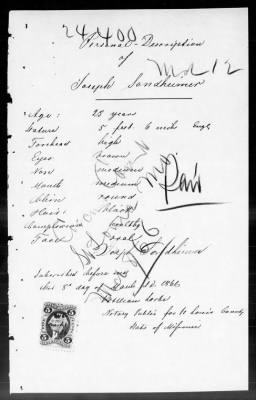 24400
Personal Description
of
Joseph Sondheimer
Mch 12
Age: 25 years
Stature 5 feet 6 inch Engl.
Forehead high
Eyes brown
Nose medium
Mouth medium
Chin round
Hair black
Complexion healthy
Face oval
Paid
Mo
Joseph Sondheimer
Subscribed before me
this 8th day of March A.D. 1866
Notary Public for St Louis County
State of Missouri
5 5
5 5